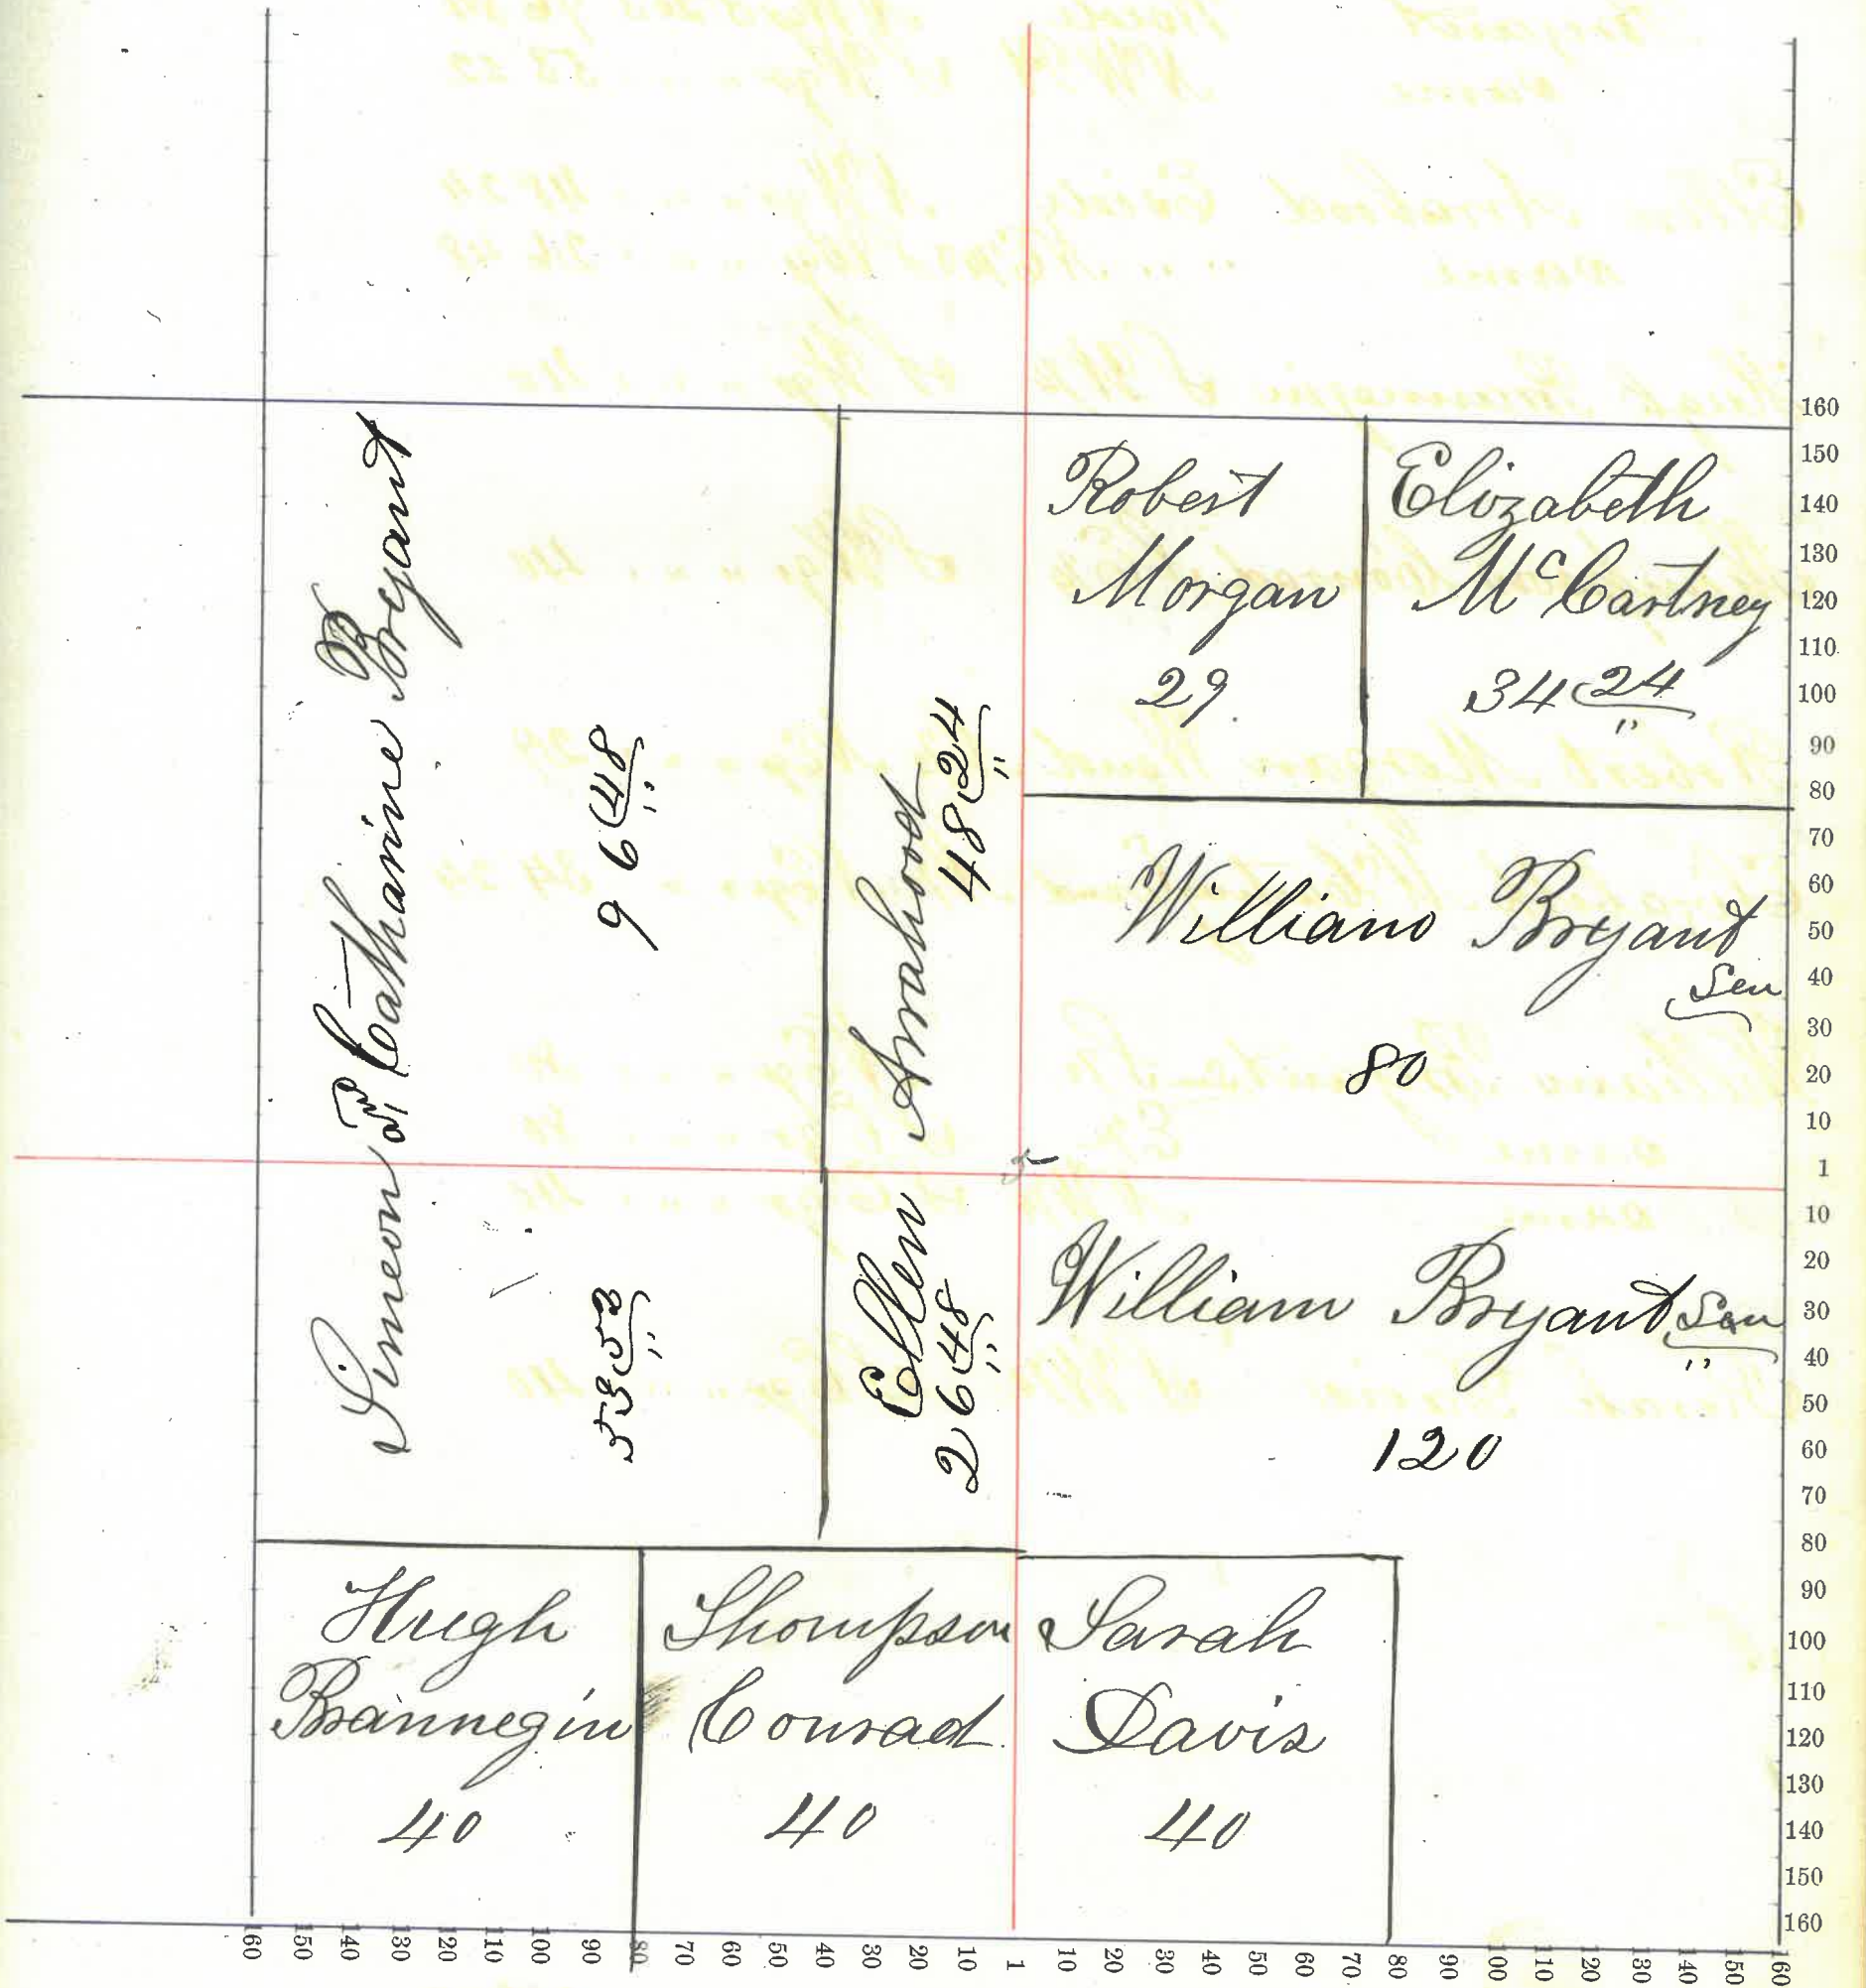 Simeon and Catharine Bryant
96 48
53 53
Ellen Arrahood
48 24
26 48
Robert
Morgan
29
Elizabeth
McCartney
34 24
William Bryant
Sen
80
William Bryant Sen
120
Hugh
Brannegin
40
Thompson
Conrad
40
Sarah
Davis
40
160
150
140
130
120
110
100
90
80
70
60
50
40
30
20
10
1
10
20
30
40
50
60
70
80
90
100
110
120
130
140
150
160
160 150 140 130 120 110 100 90 80 70 60 50 40 30 20 10 1 10 20 30 40 50 60 70 80 90 100 110 120 130 140 150 160